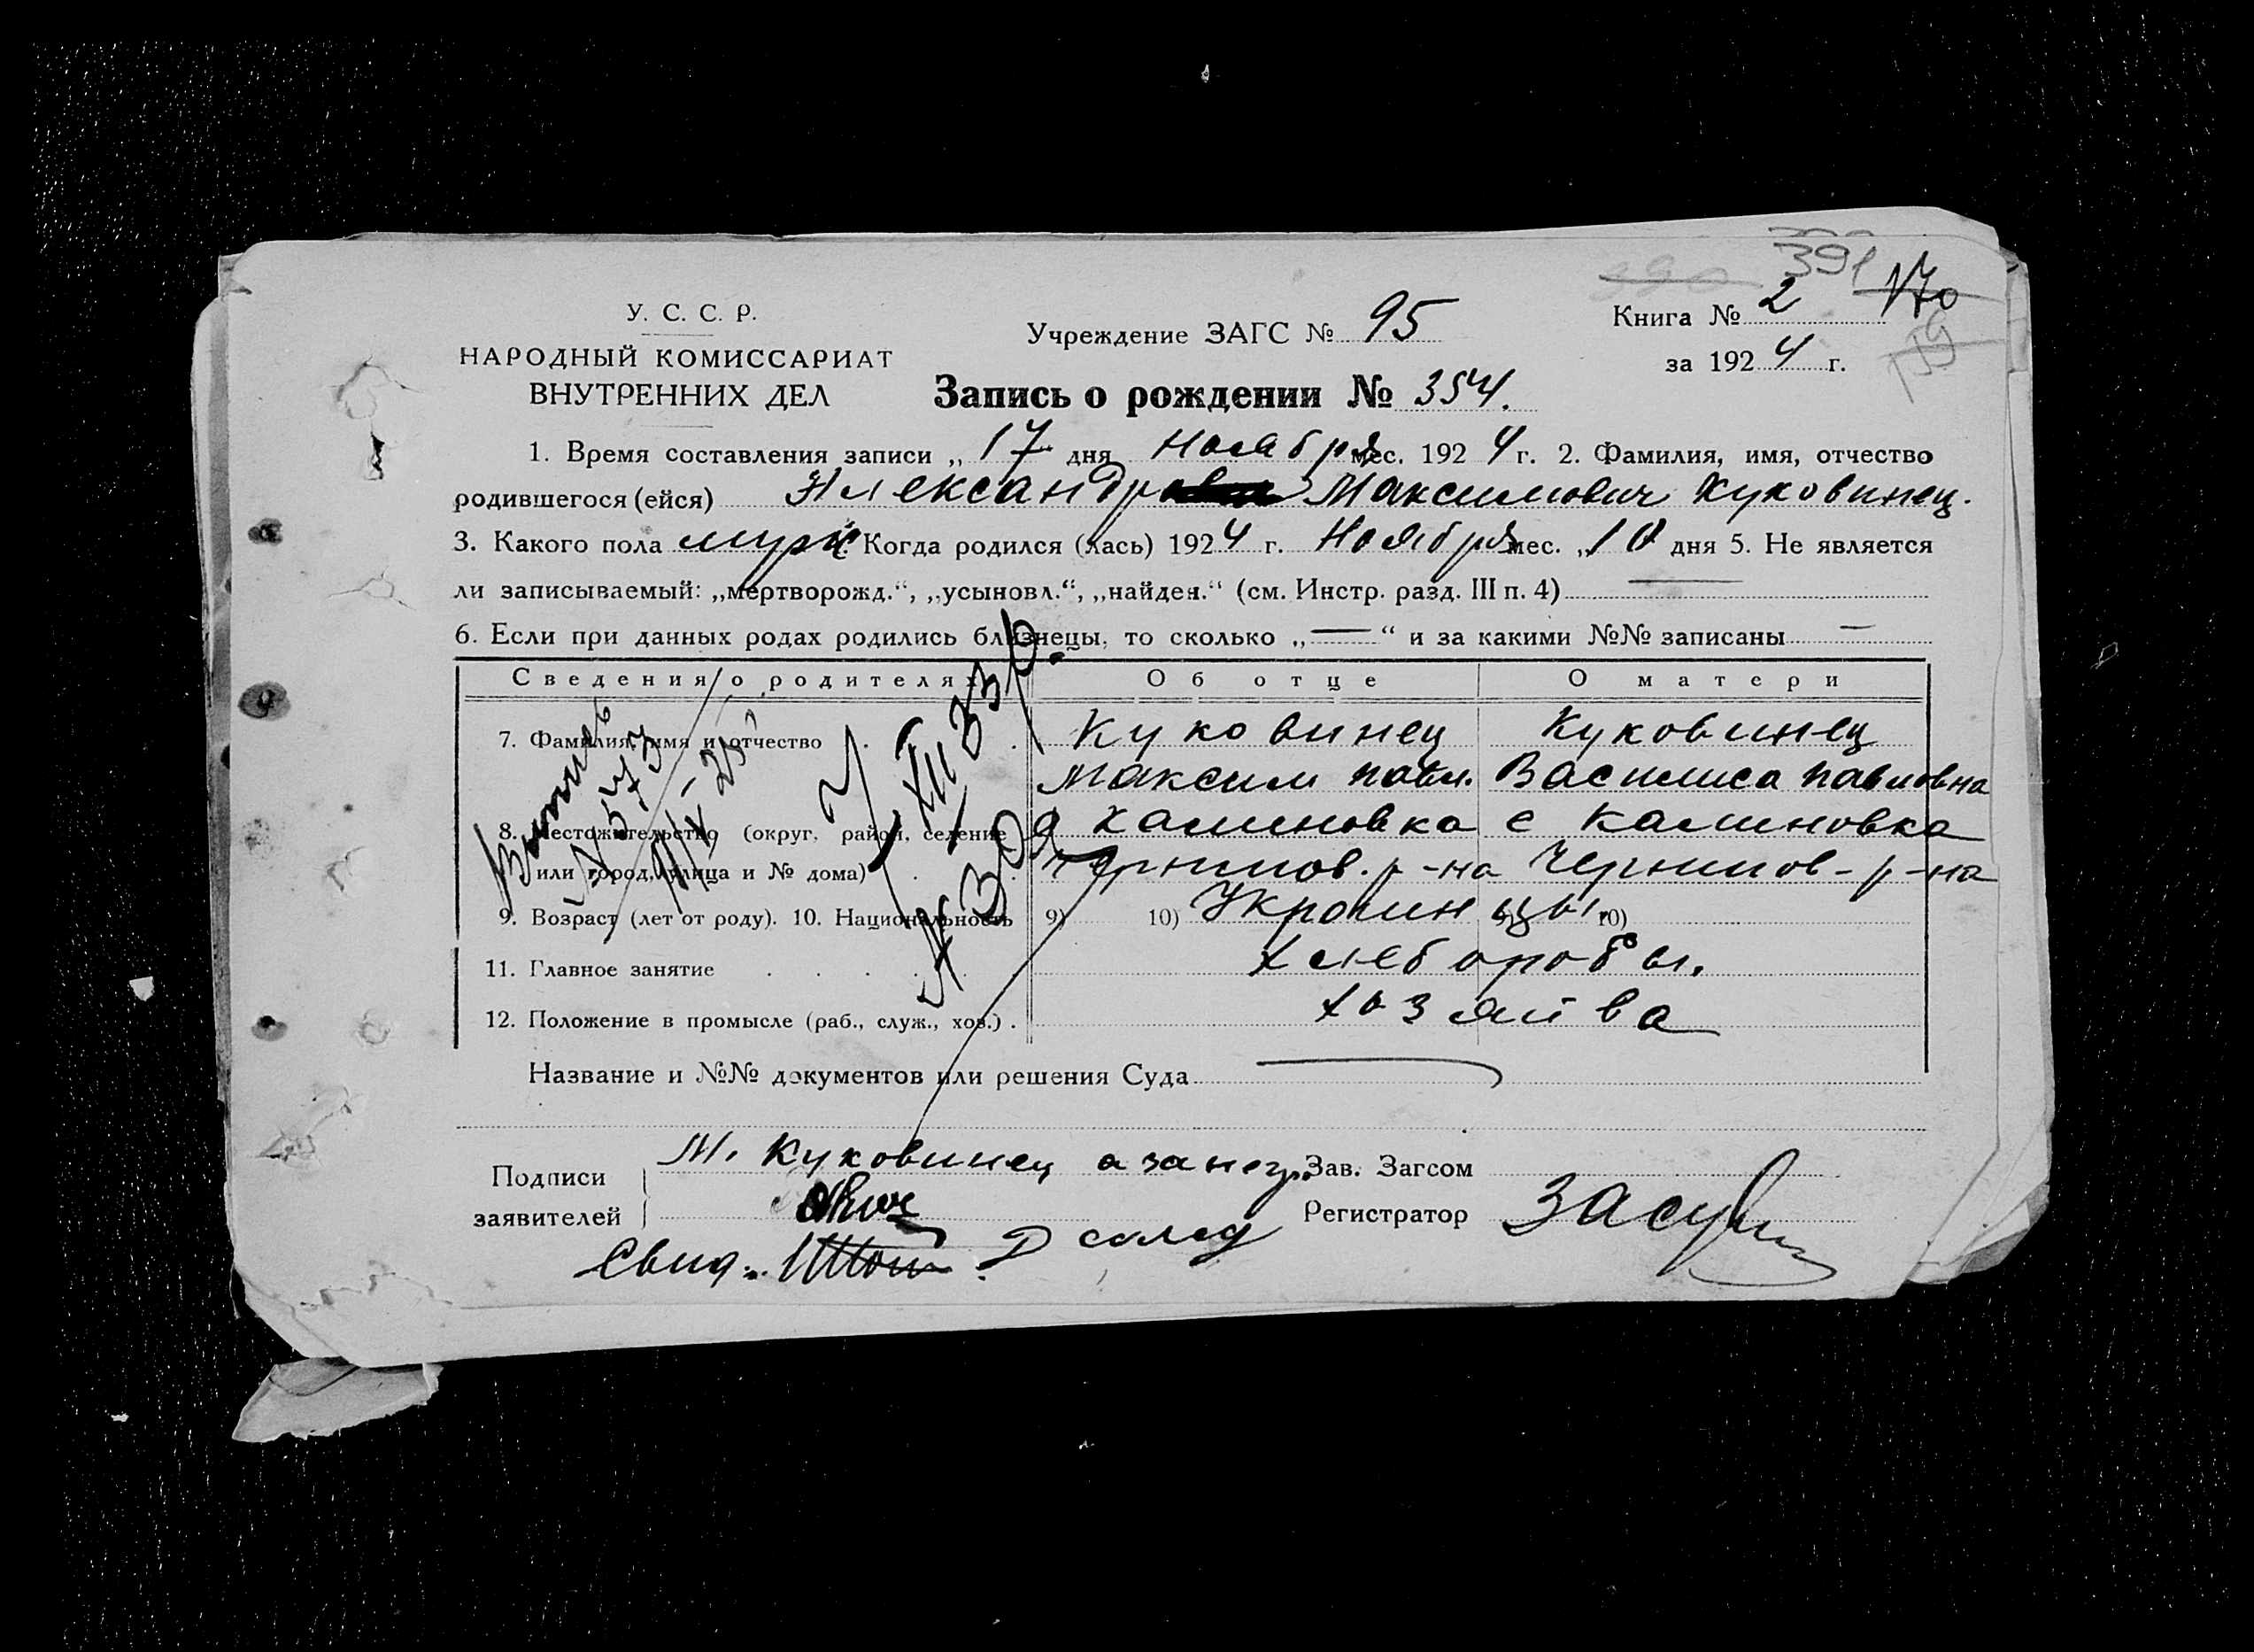 391
170
У. С. С. Р.
НАРОДНЫЙ КОМИССАРИАТ
ВНУТРЕННИХ ДЕЛ
Учреждение ЗАГС № 95
Книга № 2
за 1924 г.
Запись о рождении № 354.
1. Время составления записи „17 дня Ноября мес. 1924 г. 2. Фамилия, имя, отчество
родившегося (ейся) Александр Максимович Куковинец.
3. Какого пола муж. Когда родился (лась) 1924 г. Ноября мес. „10 дня 5. Не является
ли записываемый: „мертворожд.“, „усыновл.“, „найден.“ (см. Инстр. разд. III п. 4)
6. Если при данных родах родились близнецы, то сколько „—“ и за какими №№ записаны —
Сведения о родителях Об отце О матери
7. Фамилия, имя и отчество Куковинец Куковинец
Максим павл. Василиса павловна
8. Местожительство (округ, район, селение Калиновка с Калиновка
или город, улица и № дома) Чернигов. р-на Чернигов-р-на
9. Возраст (лет от роду). 10. Национальность 9) 10) Украинцы. 10)
11. Главное занятие хлеборобы.
12. Положение в промысле (раб., служ., хоз.) хозяйва
N 573
Название и №№ документов или решения Суда
Подписи
заявителей
М. Куковинец а за негр.
Зав. Загсом
Регистратор
Свид.